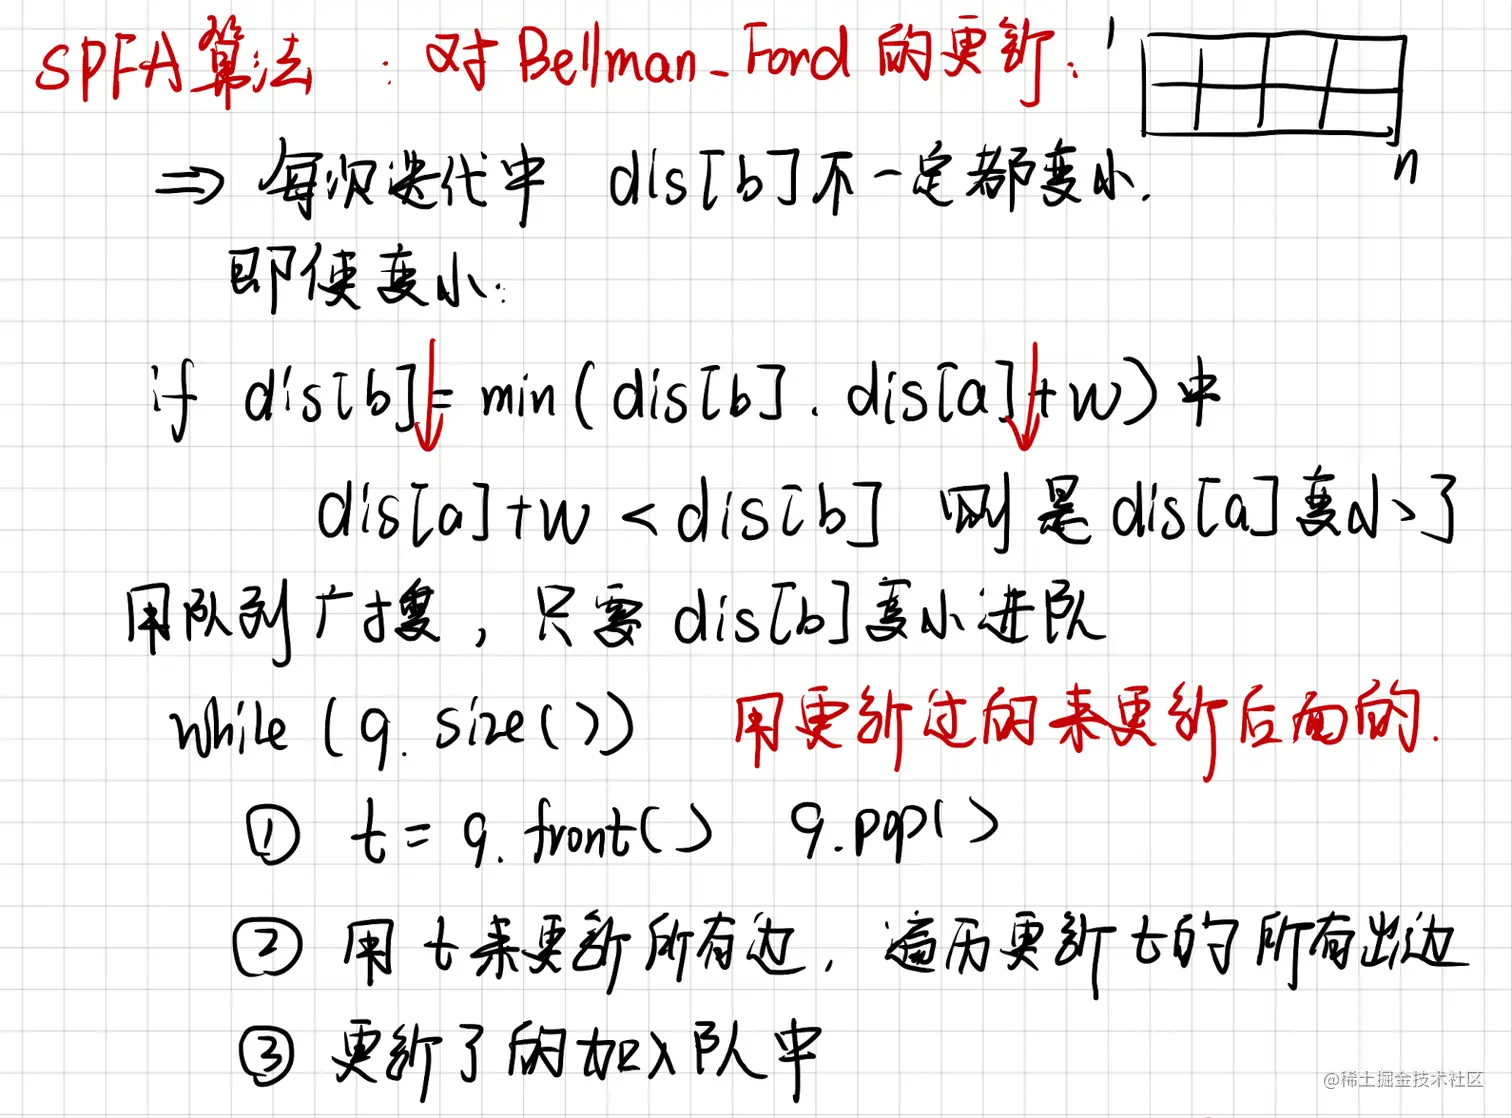 SPFA算法 : 对Bellman_Ford 的更新: 1
n
⇒ 每次迭代中 dis[b]不一定都变小.
即使变小:
if dis[b]= min(dis[b]. dis[a]+w)中
dis[a]+w < dis[b] 则是dis[a]变小了
用队列广搜, 只要 dis[b]变小进队
while (q.size()) 用更新过的来更新后面的.
① t= q.front() q.pop()
② 用 t来更新所有边, 遍历更新t的所有出边
③ 更新了的加入队中
@稀土掘金技术社区